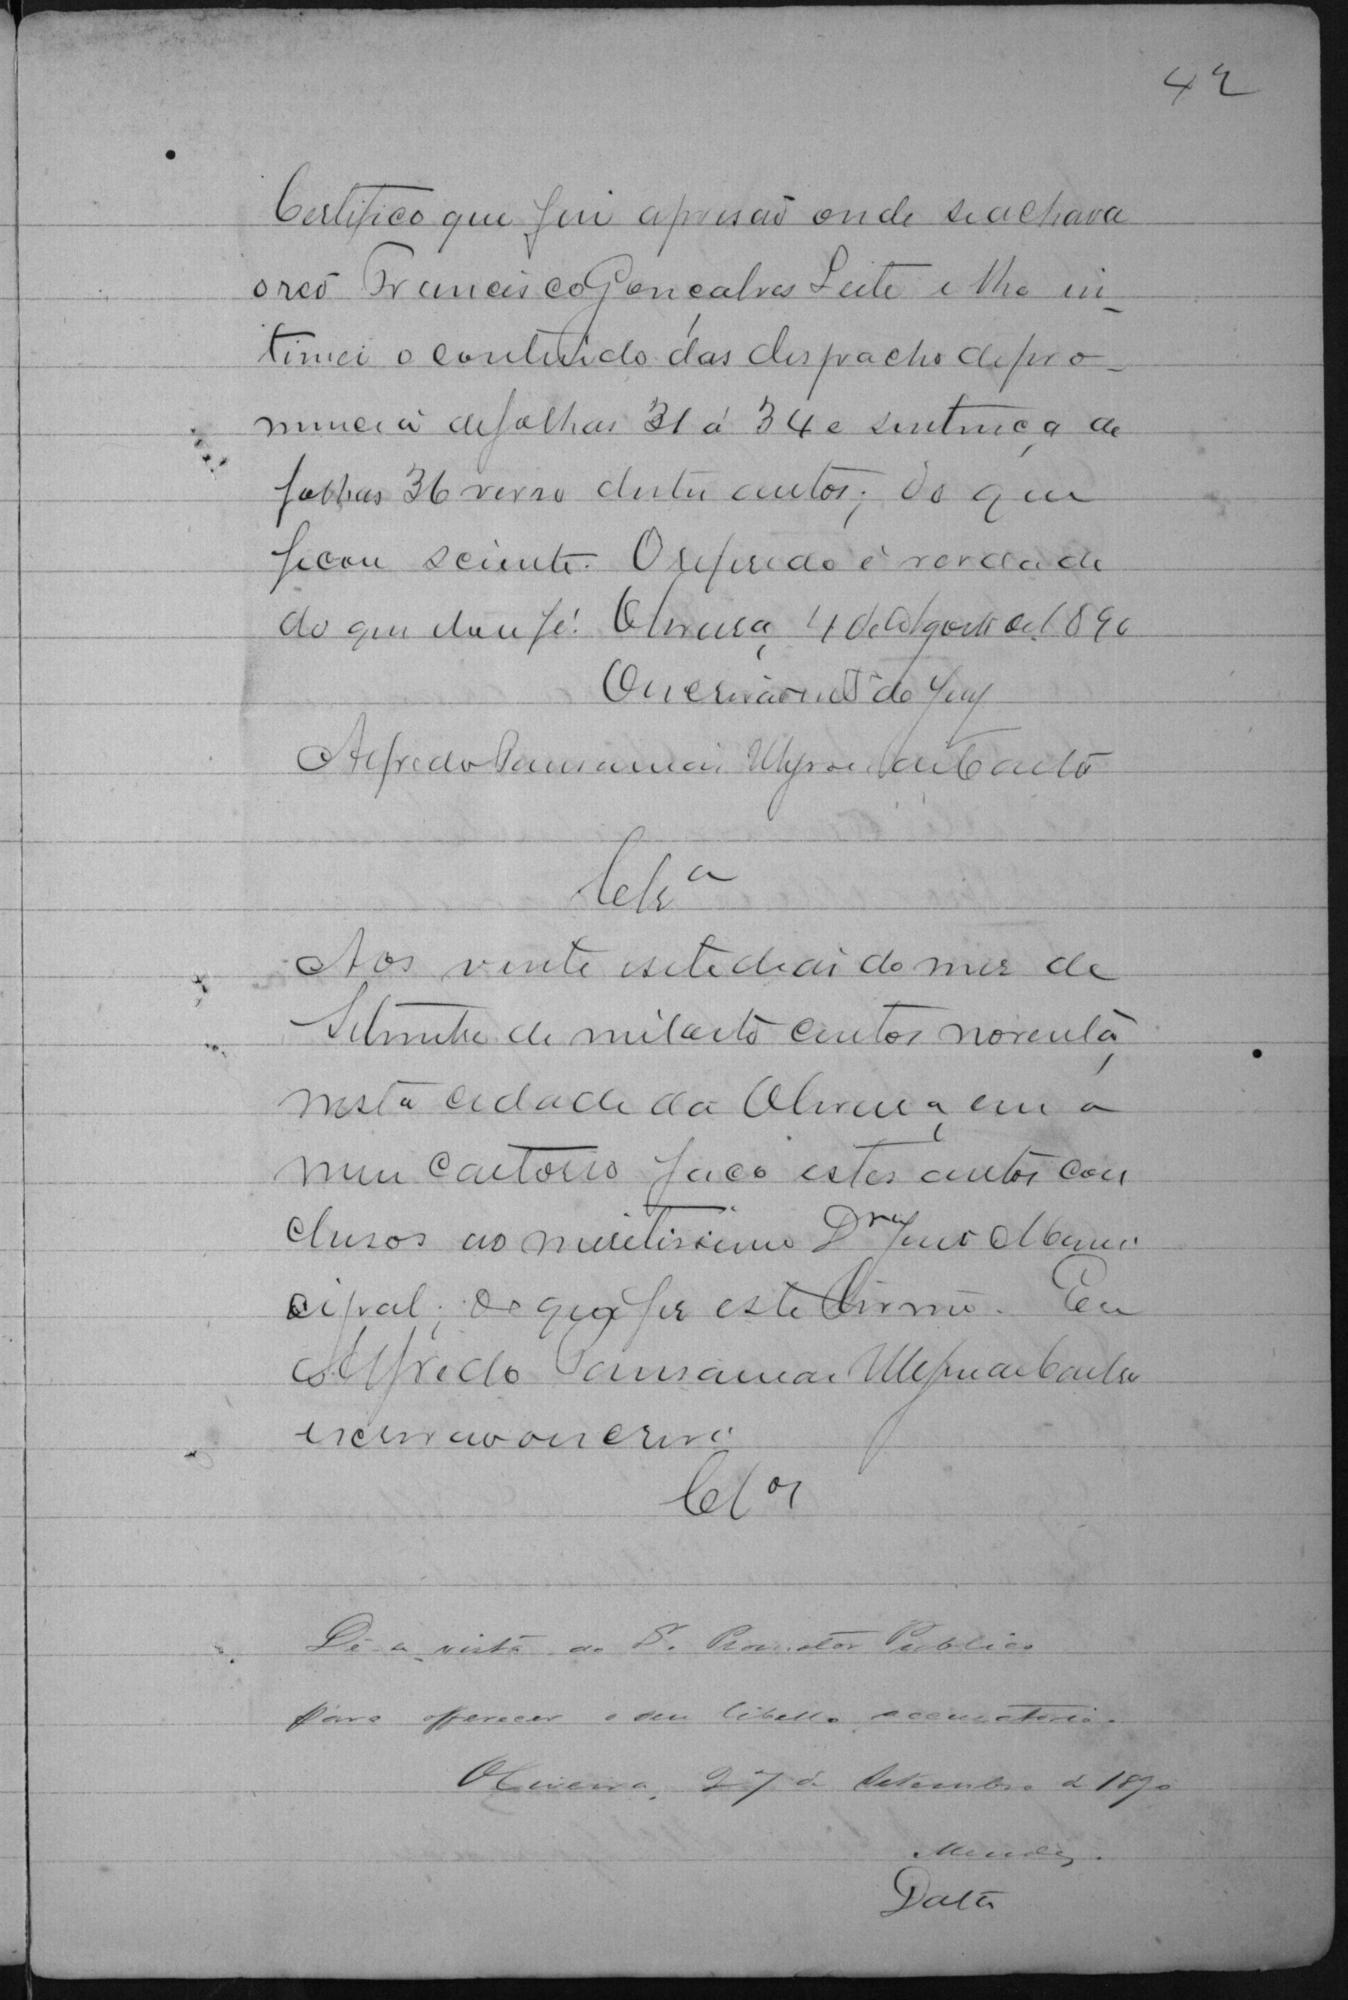 42
Certifico que fui a prisão onde se achava
o reo Francisco Gonçalves Leite e lhe in-
timei o contuido das despacho de pro-
nuncia de folhas 31 á 34 e sentença de
folhas 36 verso destes autos; do que
ficou sciente. O referido é verdade
do que dou fé. Oliveira, 4 de Agosto de 1890
O escrivão do Jury
Alfredo Pausanias Ulysses de Castro
Clsa
Aos vinte e sete dias do mez de
Setembro de mil oito centos noventa,
nesta cidade da Oliveira, em a
meu cartorio faço estes autos con
clusos ao meritissimo Dr Juiz Muni
cipal; do que fiz este termo. Eu
Alfredo Pausanias Ulysses de Castro
escrivão o escrevi
Clos
Dê-a vista ao Dr. Promotor Publico
para offerecer o seu libello accusatorio.
Oliveira, 27 de Setembro de 1890
Mendes.
Data